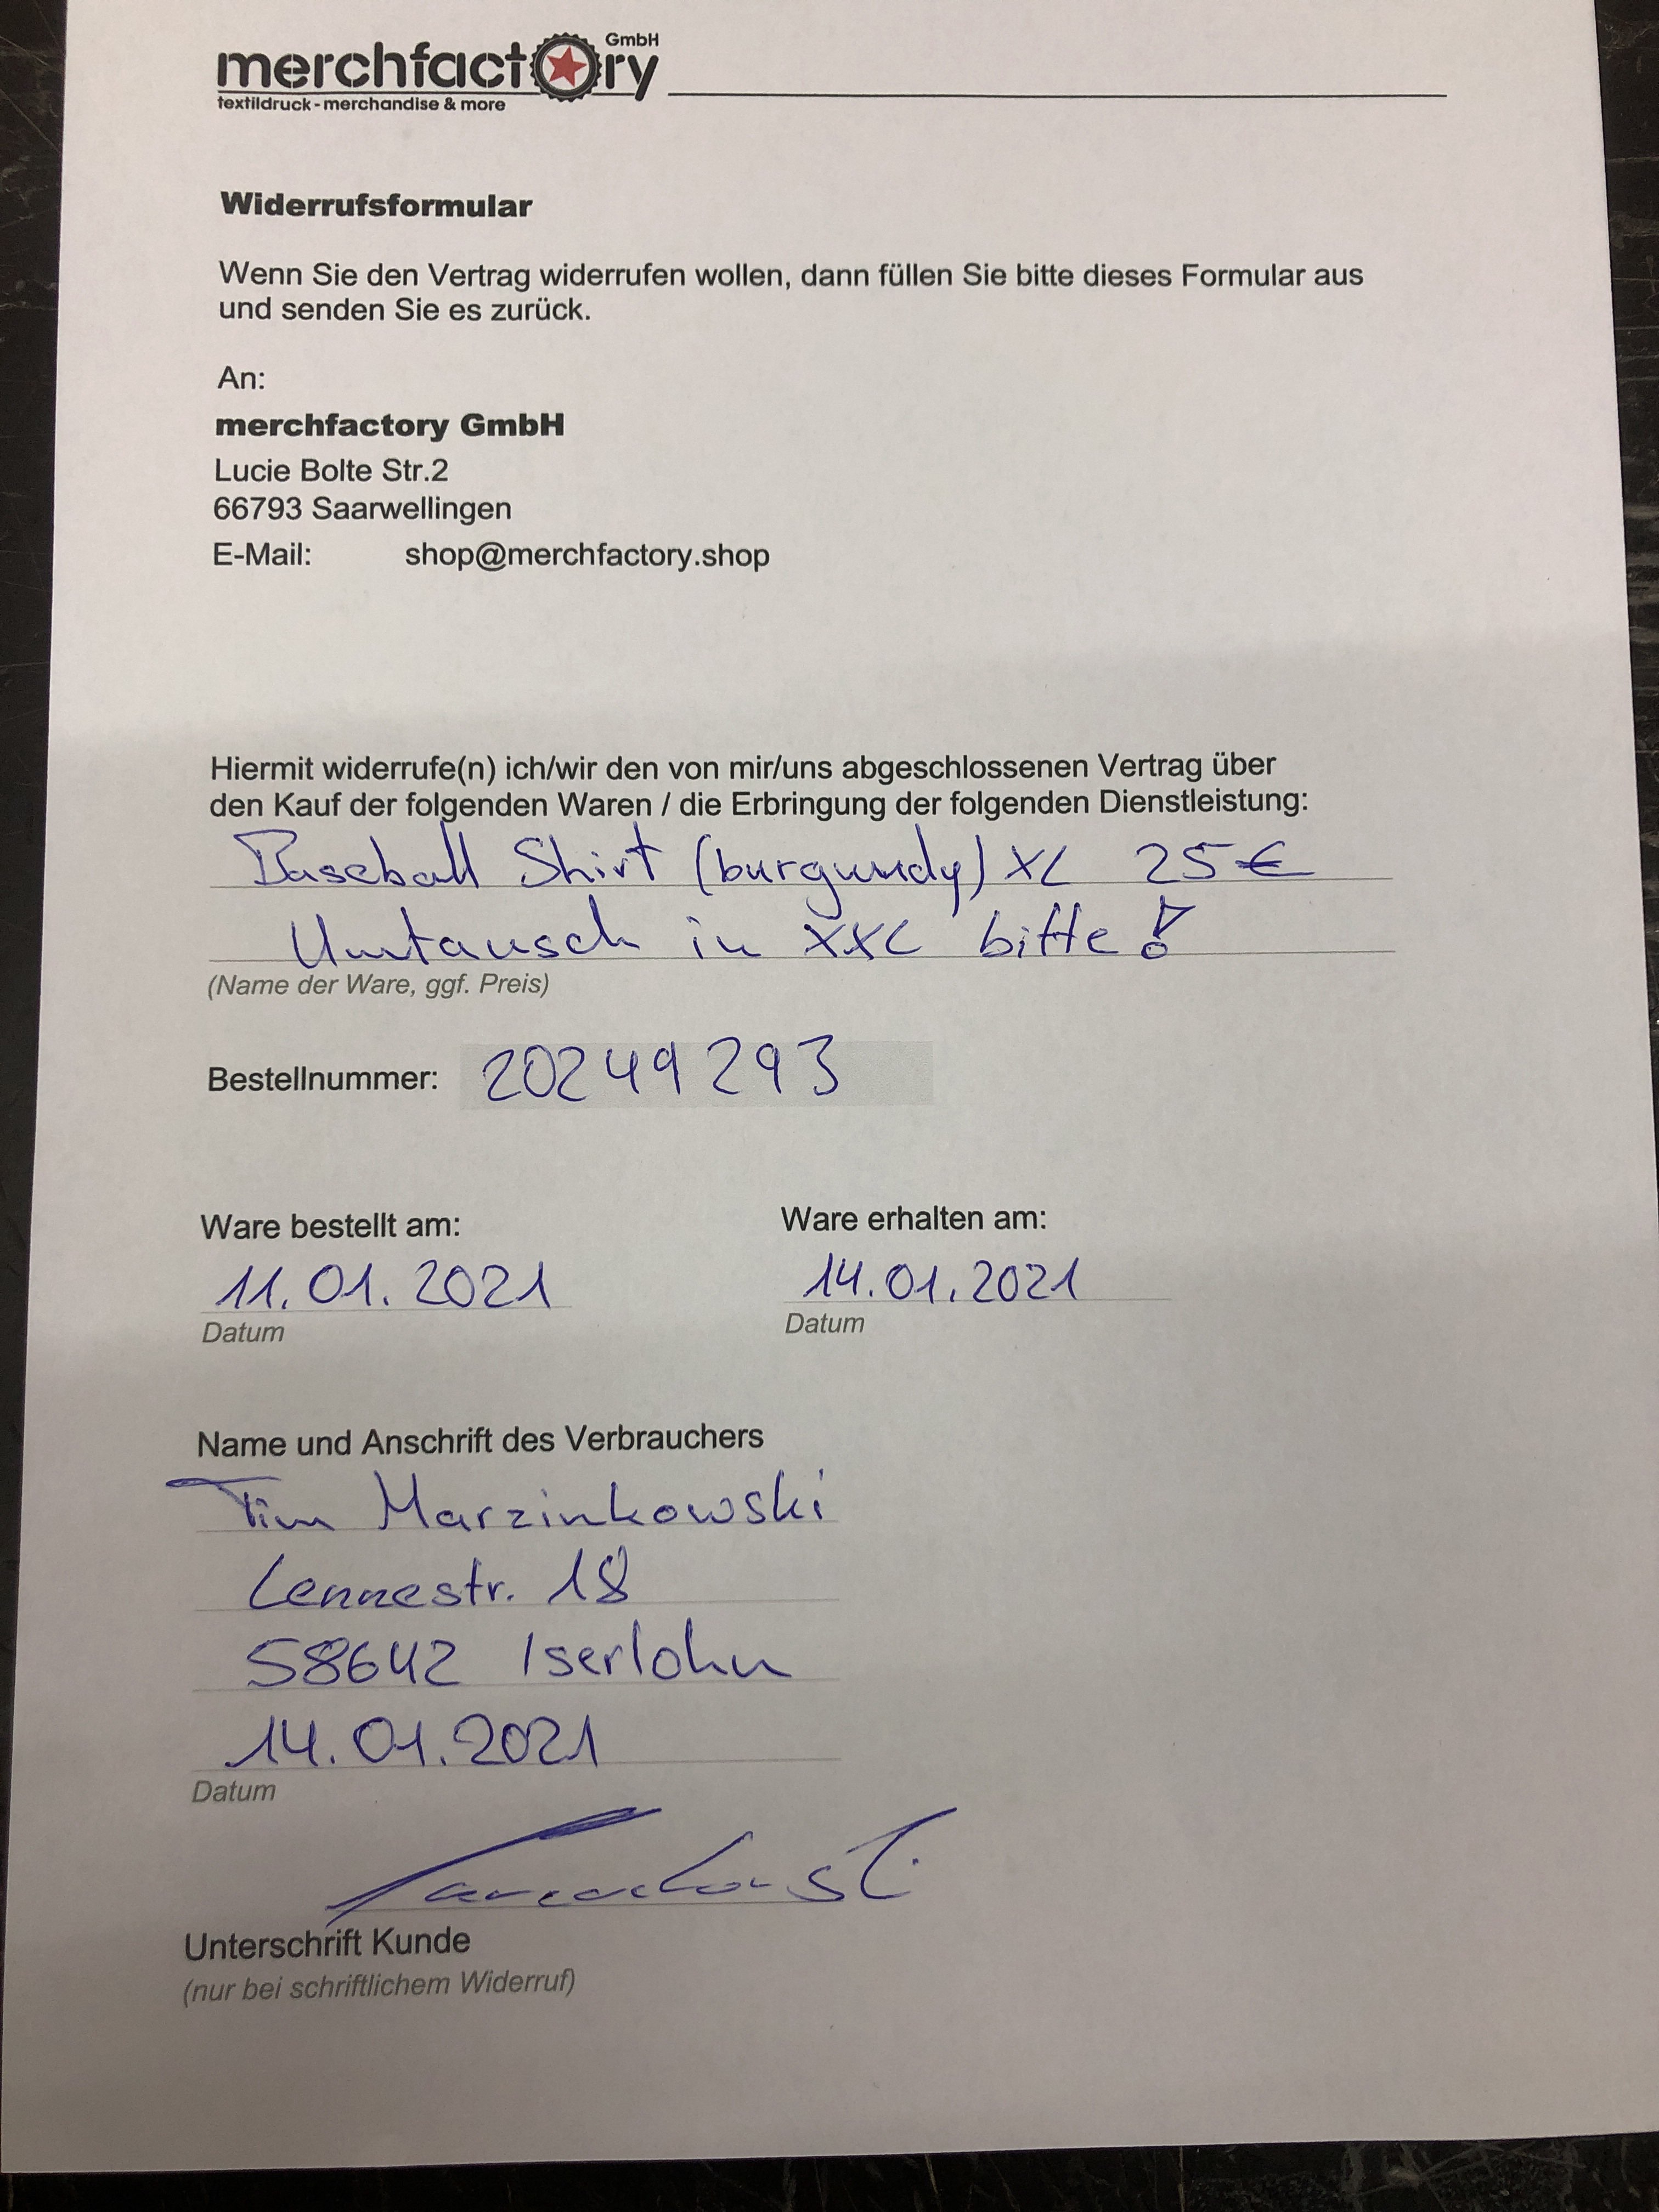 merchfactory GmbH
textildruck - merchandise & more
Widerrufsformular
Wenn Sie den Vertrag widerrufen wollen, dann füllen Sie bitte dieses Formular aus
und senden Sie es zurück.
An:
merchfactory GmbH
Lucie Bolte Str.2
66793 Saarwellingen
E-Mail: shop@merchfactory.shop
Hiermit widerrufe(n) ich/wir den von mir/uns abgeschlossenen Vertrag über
den Kauf der folgenden Waren / die Erbringung der folgenden Dienstleistung:
Baseball Shirt (burgundy) XL 25€
Umtausch in XXL bitte!
(Name der Ware, ggf. Preis)
Bestellnummer: 20249293
Ware bestellt am: Ware erhalten am:
11.01.2021 14.01.2021
Datum Datum
Name und Anschrift des Verbrauchers
Tim Marzinkowski
Lennestr. 18
58642 Iserlohn
14.01.2021
Datum
Unterschrift Kunde
(nur bei schriftlichem Widerruf)